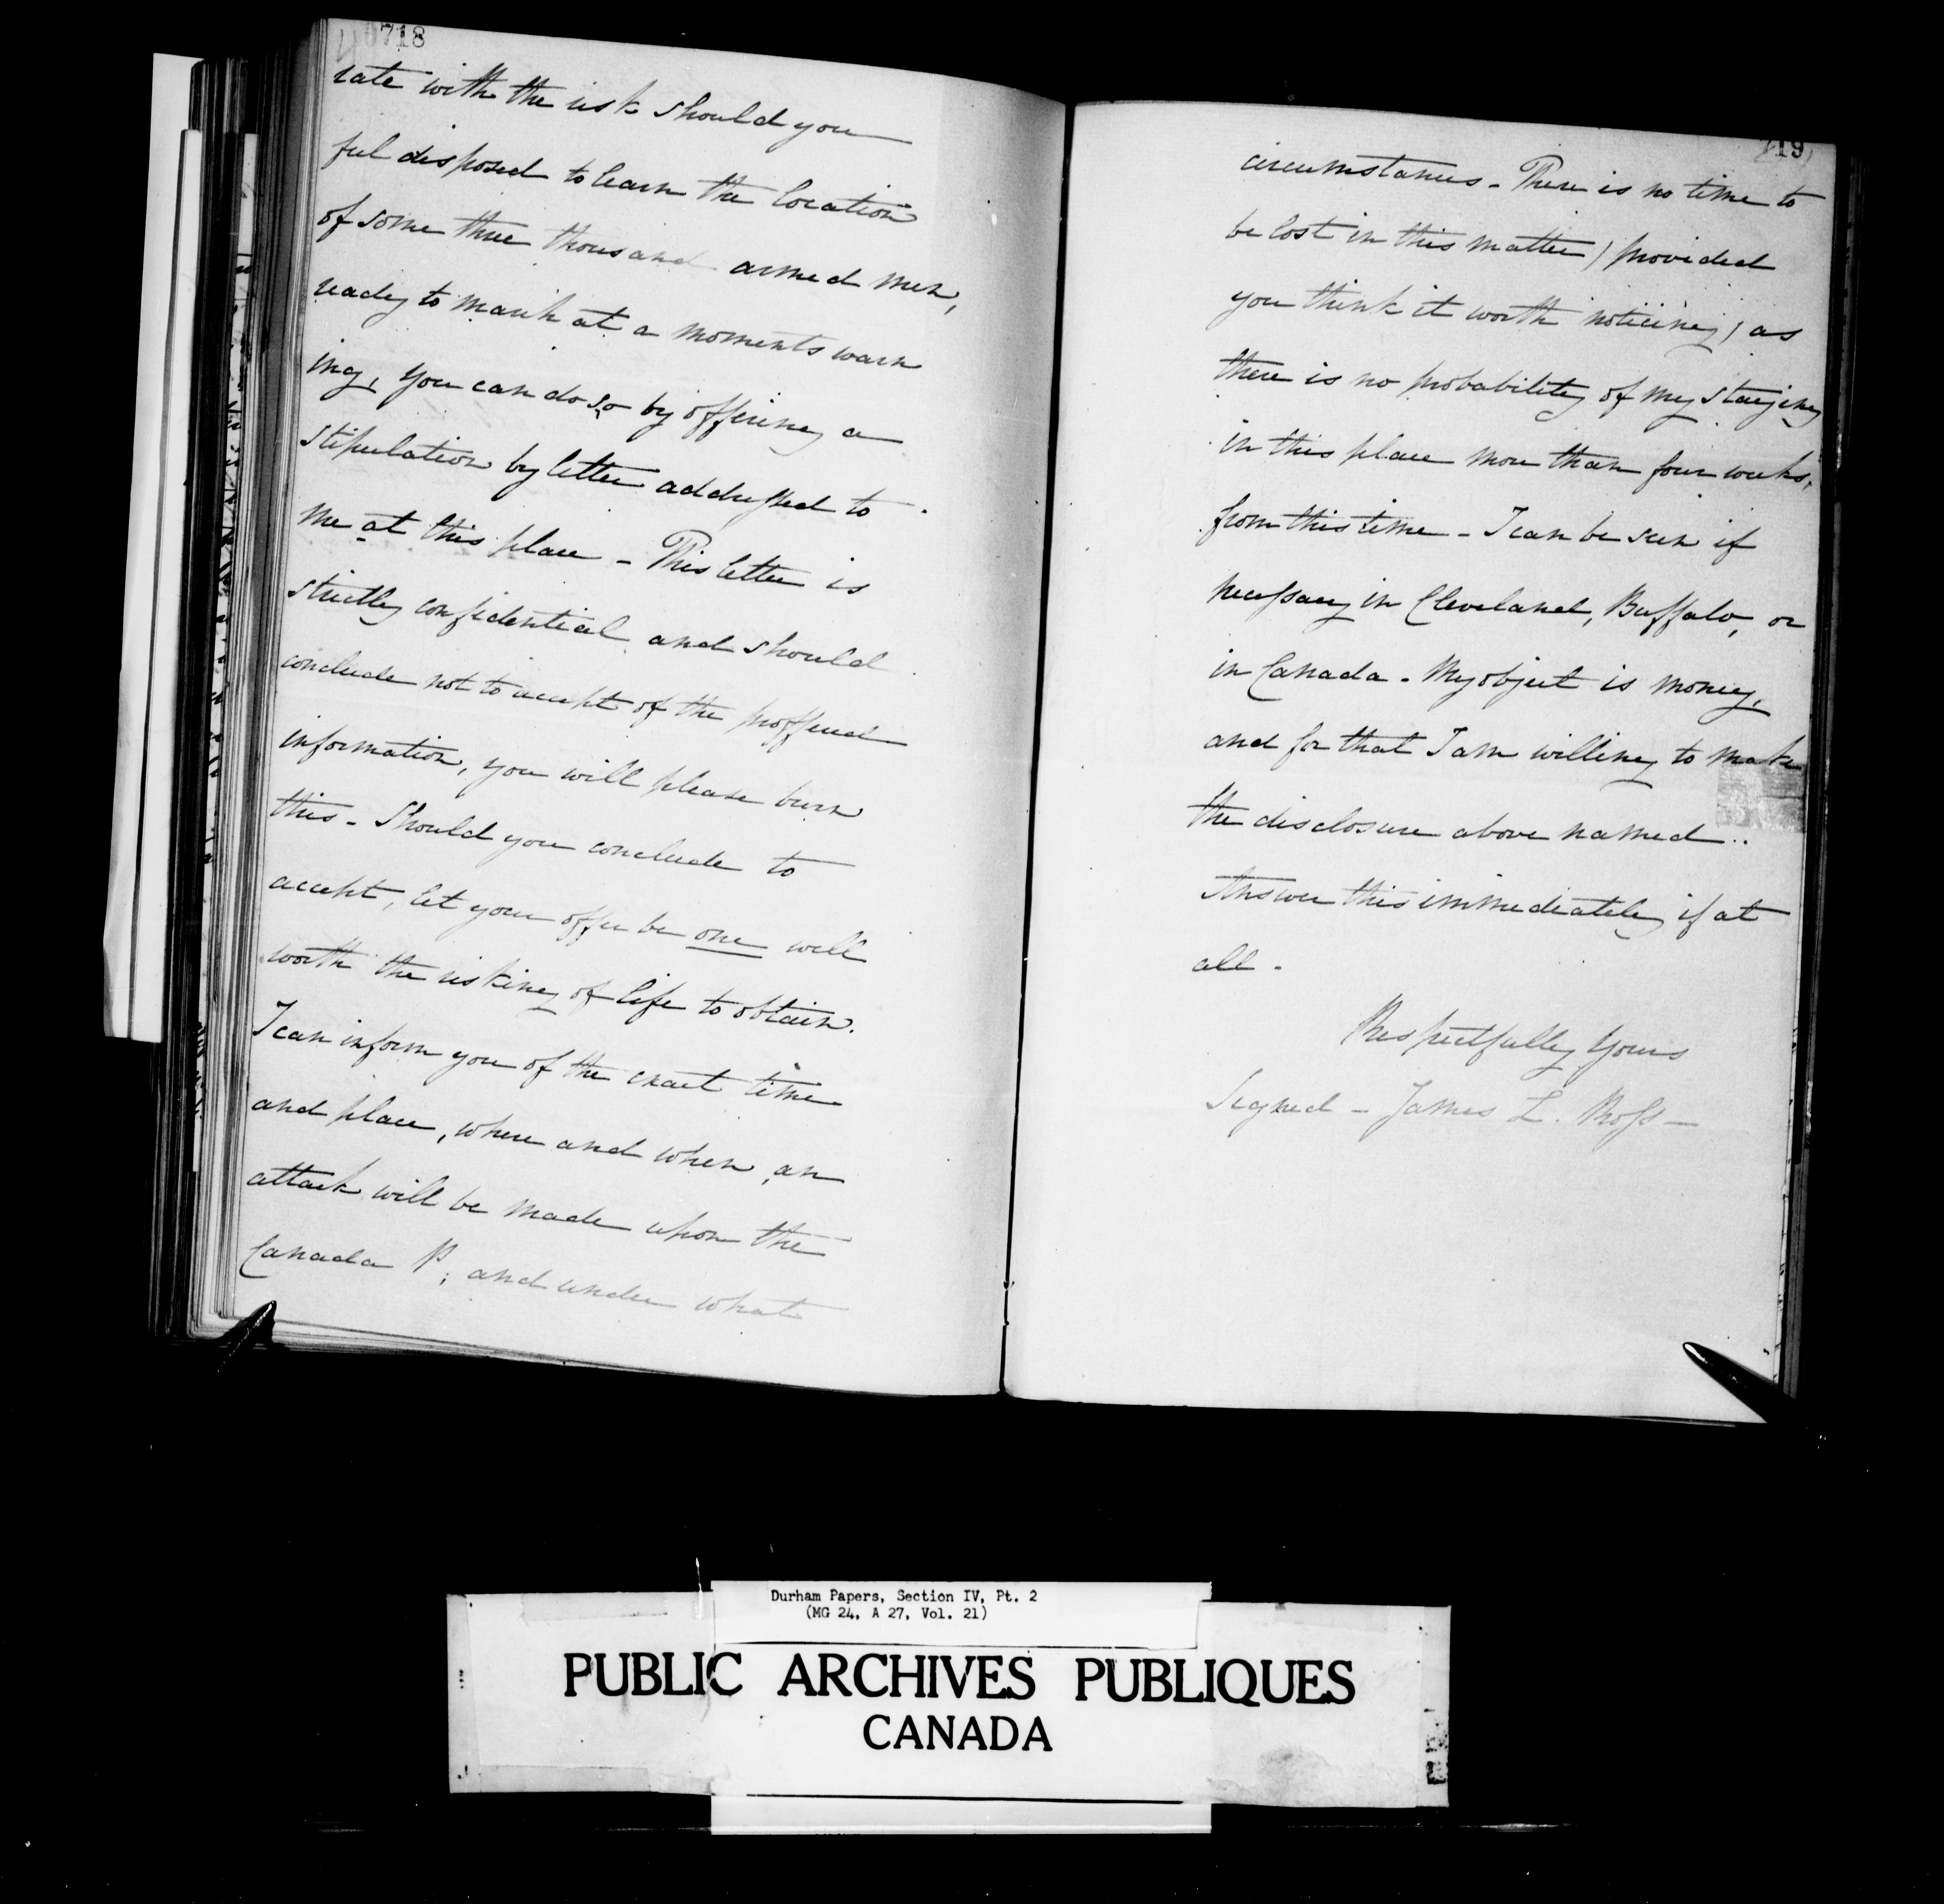 718
rate with the risk should you
feel disposed to learn the location
of some three thousand armed men,
ready to march at a moments warn
ing, you can do so by offering a
stipulation by letter addressed to
me at this place - This letter is
strictly confidential and should
conclude not to accept of the proffered
information, you will please burn
this - Should you conclude to
accept, let your offer be one well
worth the risking of life to obtain.
I can inform you of the exact time
and place, where and when, an
attack will be made upon the
Canada P; and under what
719
circumstances - There is no time to
be lost in this matter) provided
you think it worth noticing) as
there is no probability of my staying
in this place more than four weeks,
from this time - I can be seen if
necessary in Cleveland, Buffalo, or
in Canada - My object is money,
and for that I am willing to make
the disclosure above named ..
Answer this immediately if at
all -
Respectfully Yours
Signed - James L. Ross -
Durham Papers, Section IV, Pt. 2
(MG 24, A 27, Vol. 21)
PUBLIC ARCHIVES PUBLIQUES
CANADA